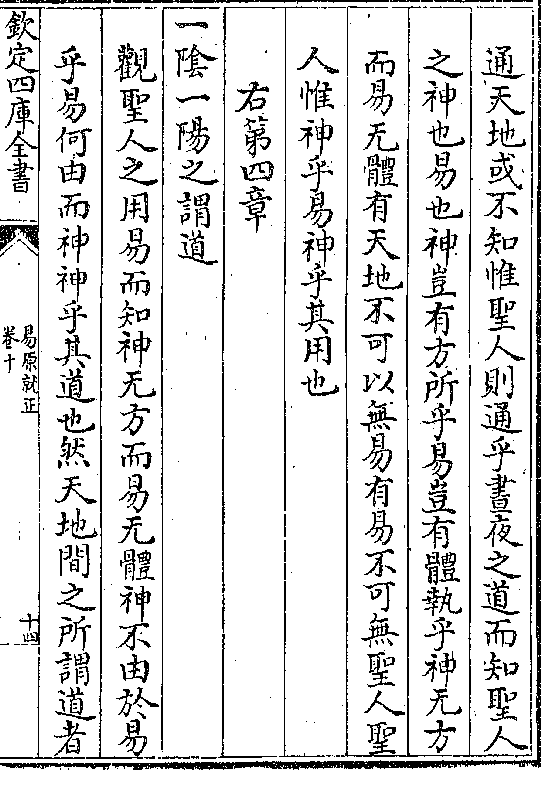 通天地或不知惟聖人則通乎晝夜之道而知聖人
之神也易也神豈有方所乎易豈有體執乎神无方
而易无體有天地不可以無易有易不可無聖人聖
人惟神乎易神乎其用也
右第四章
一陰一陽之謂道
觀聖人之用易而知神无方而易无體神不由於易
乎易何由而神神乎其道也然天地間之所謂道者
欽定四庫全書
易原就正
卷十
十四